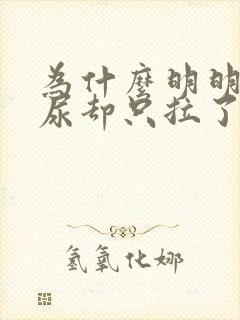 為什麼明明
尿却只拉了
氢氧化娜